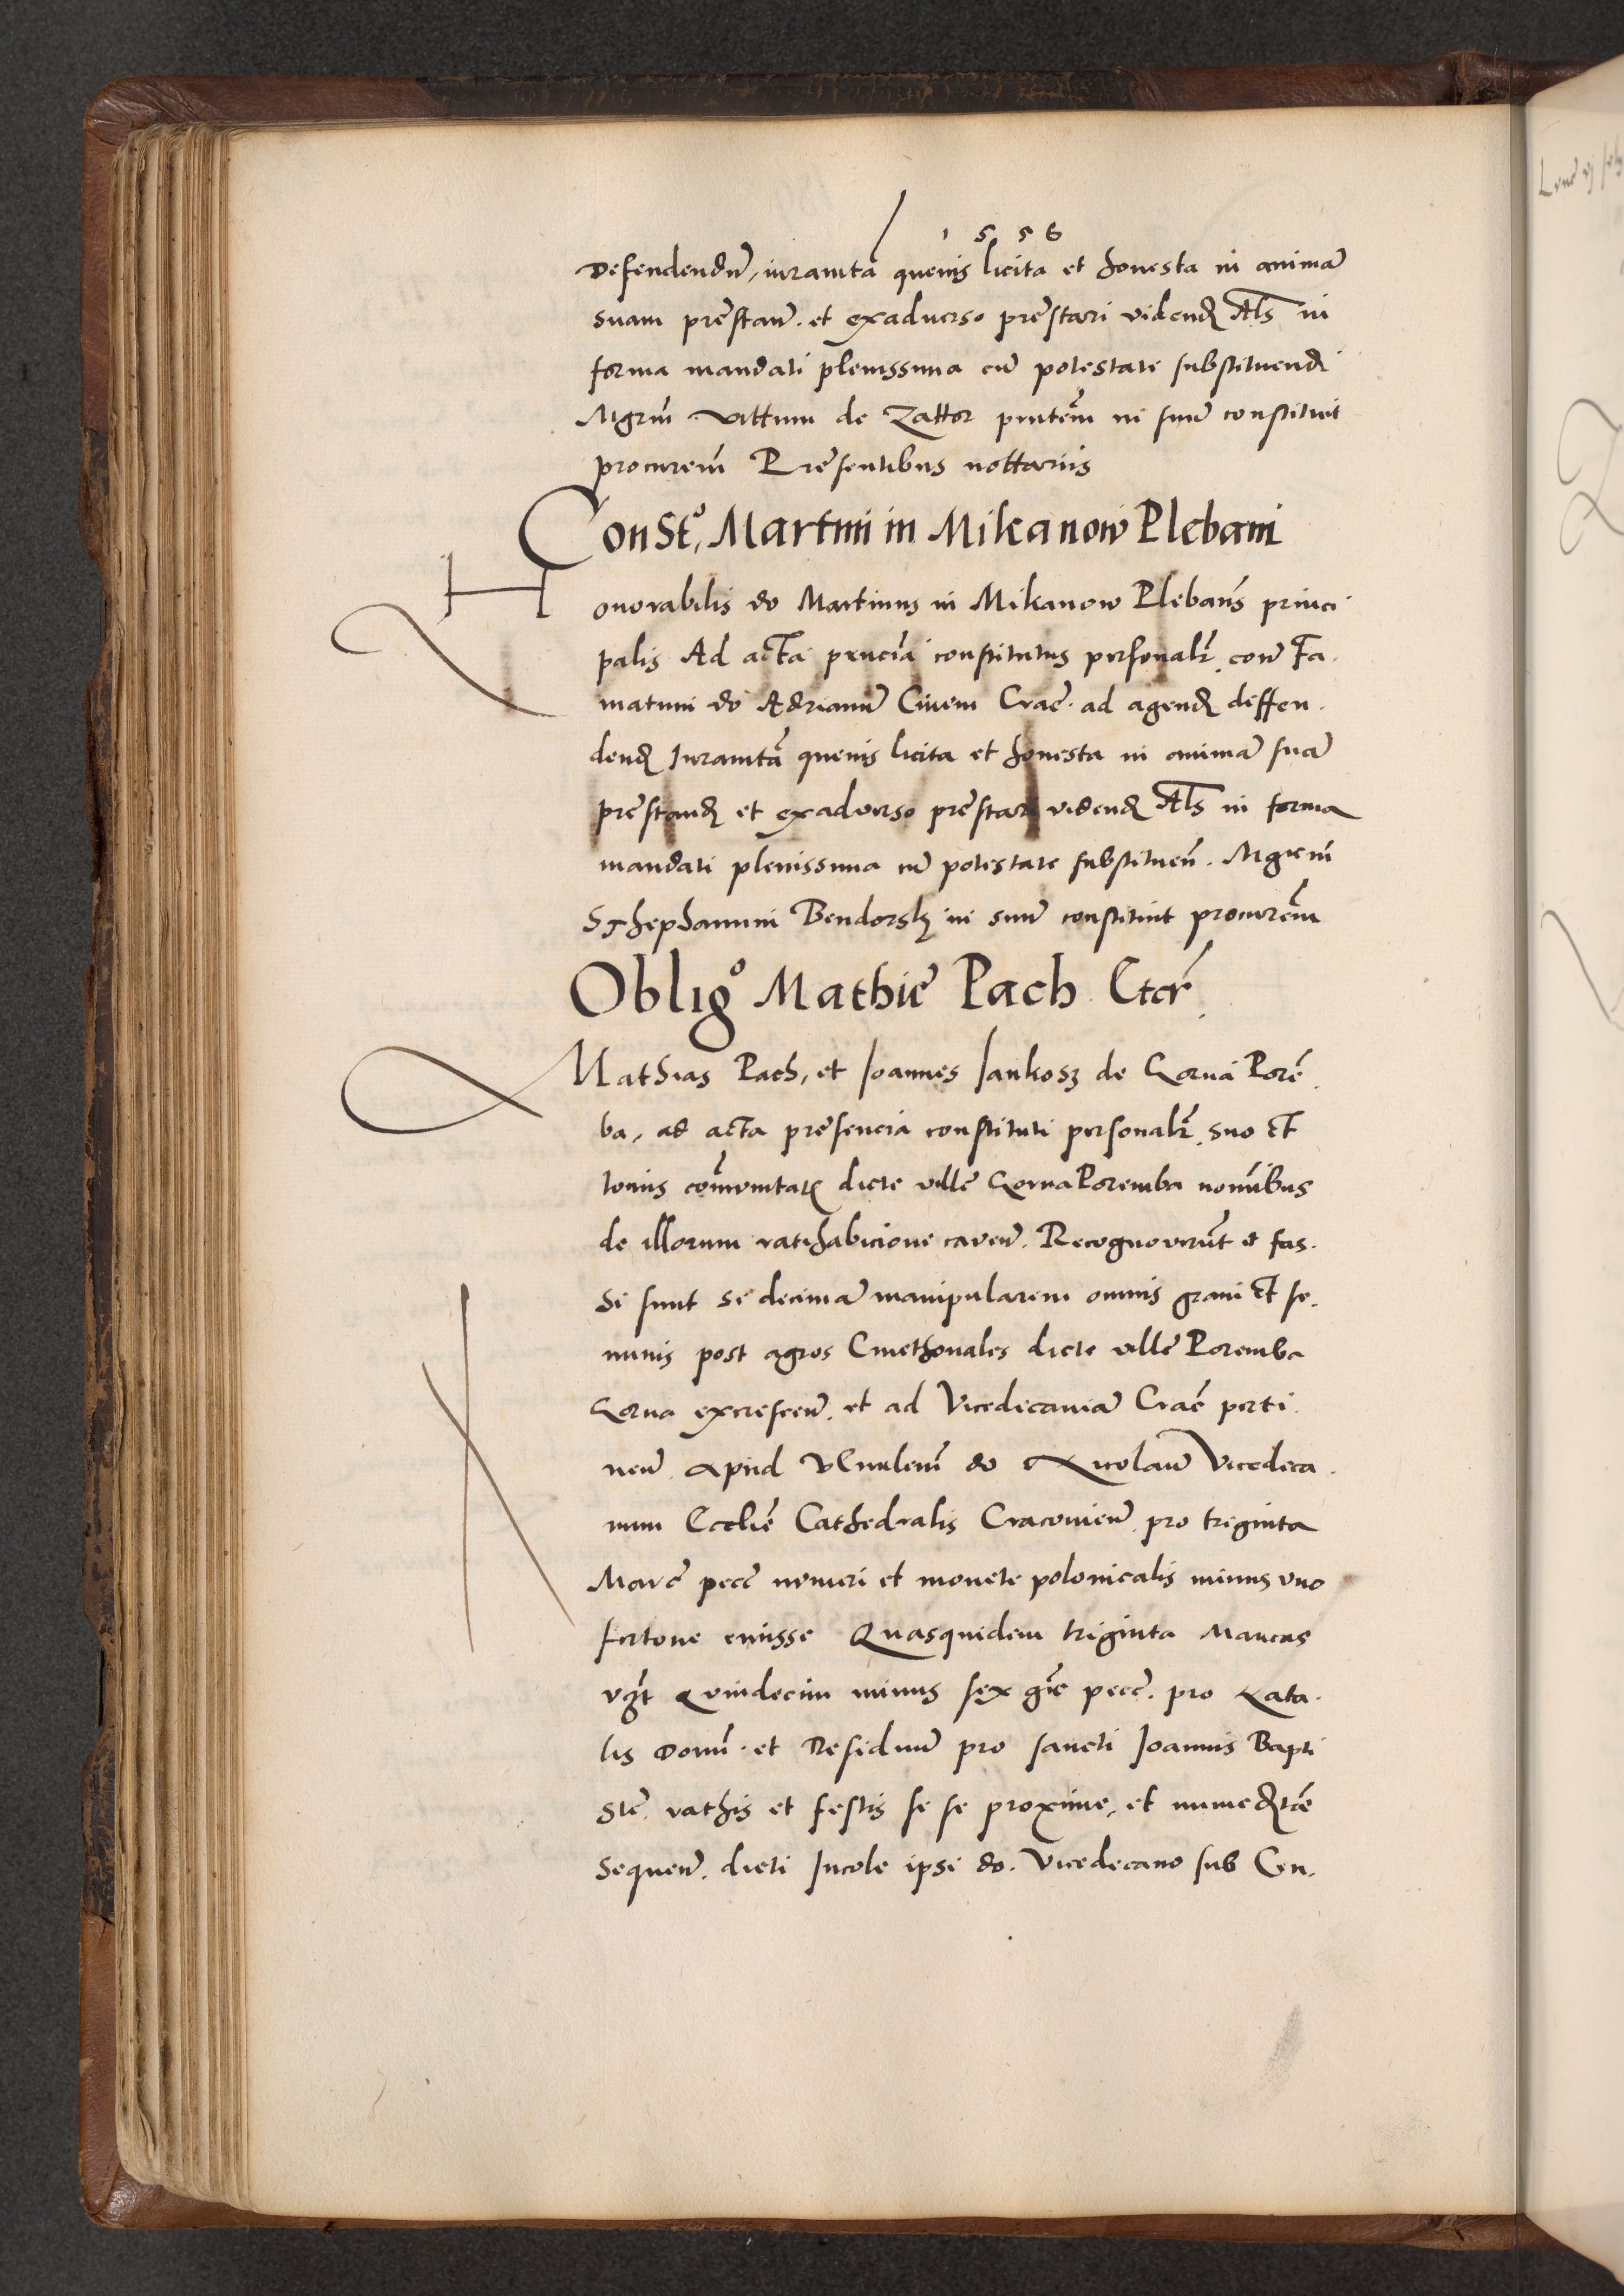 1 5 5 6
Defendendũ, iuramtã queuis licita et honesta in animã
suam prestanẽ. et exaduerso prestari vidend Als in
forma mandati plenissima cũ potestate substituendi
Mgrm̃ Vittum de Zattor pntem̃ in suũ constituit
procurem̃ Presentibus nottariis
Constº, Martini in Mikanow Plebani
Honorabilis do Martinus in Mikanow Plebanus princi
palis Ad acta pruciã constitutus personalr̃. corã Fa.
matum do Adrianũ Ciuem Crac̃. ad agend deffen.
dend Iuramtã queuis licita et honesta in animã suã
prestand et exaduerso prestari vidend Als in forma
mandati plenissima cũ potestate substituen̄. Mgrm̃
Sthephanum Bendorsky in suũ constituit procurem̃
Obligº Mathie Pach Etcr̃.
Mathias Pach, et Joannes Jankosz de Gorna Porẽ.
ba, ad acta presencia constituti personalr̃. suo et
tocius com̃unitatis dicte ville Gorna Poremba nom̃ibus
de illorum ratihabicione cavenẽ. Recognoverũt et fas.
si sunt se decimã manipularem omnis grani et se.
minis post agros Cmethonales dicte ville Poremba
Gorna excrescenẽ. et ad Vicedecaniã Crac̃ perti.
nenẽ. apud Vn̄ulem̃ do Nicolaũ Vicedeca.
num Ecclie Cathedralis Cracouienẽ. pro treginta
Marc̃ pecc̃ numeri et monete polonicalis minus vno
fertone emisse Quasquidem triginta Marcas
vz̃t Quindecim minus sex gr̃ pecc̃. pro Nata.
lis Domĩ. et Residuũ pro sancti Joannis Bapti
ste. rathis et festis se se proxime, et immediate
sequenẽ. dicti Incole ipsi do. Vicedecano sub Cen.